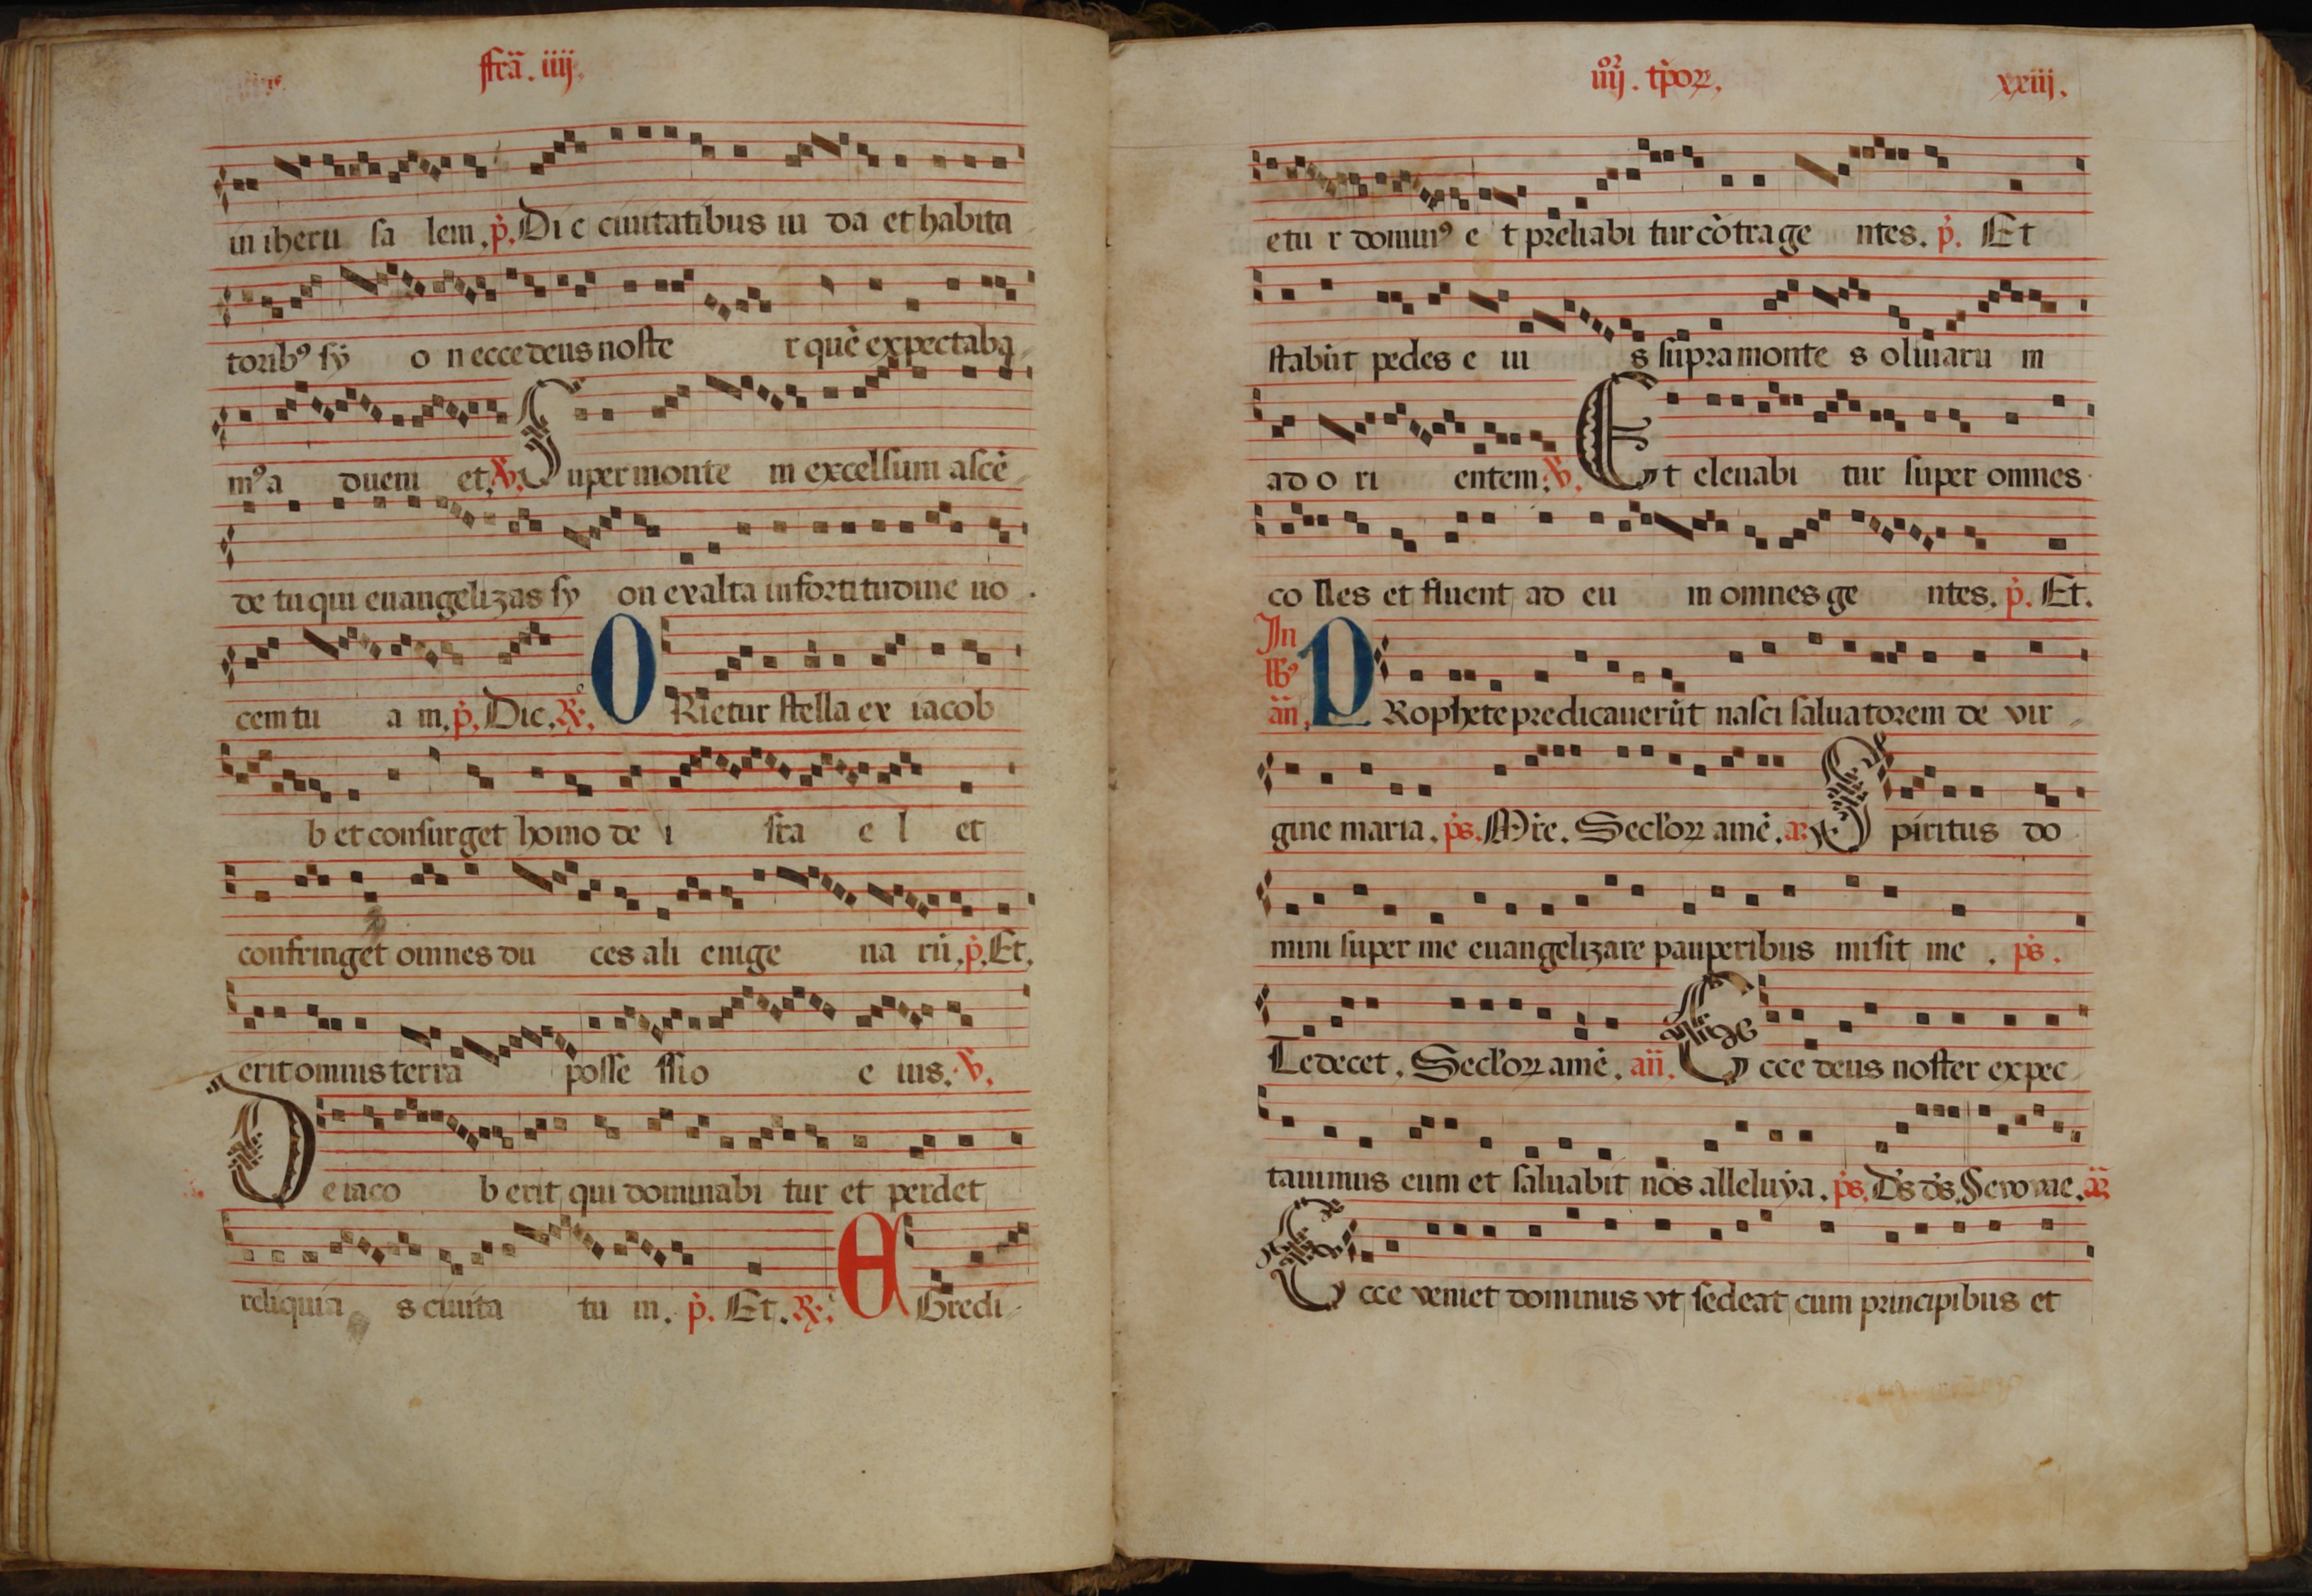 fr̃a. iiij.
in iheru sa lem. p̃. Dic ciuitatibus iu da et habita
toribꝰ sÿ o n ecce deus noste r quē expectaba
mꝰ a duem et. ℣. Super monte m excelsum ascē
de tu qui euangelizas sy on exalta in fortitudine uo
cem tu a m. p̃. Dic. ℟. ORietur stella ex iacob
b et consurget homo de i sra e l et
confringet omnes du ces ali enige na rū. p̃. Et.
erit omnis terra posse ssio e ius. ℣.
De iaco b erit qui dominabi tur et perdet
reliquia s ciuita tu m. p̃. Et. ℟. EGredi
iiij.or tp̃oꝝ. xxiij.
etu r dominꝰ e t preliabi tur cōtra ge ntes. p̃. Et
stabūt pedes e iu s supra monte s oliuaru m
ad o ri entem. ℣. Et eleuabi tur super omnes
co lles et fluent ad eu m omnes ge ntes. p̃. Et.
In
lꝰ
an̄. PRophete predicauerūt nasci saluatorem de vir
gine maria. ps̄. Mr̄e. Secl'oꝝ amē. a. Spiritus do
mini super me euangelizare pauperibus misit me. ps̄.
Te decet. Secl'oꝝ amē. an̄. Ecce deus noster expec
tauimus eum et saluabit nos alleluÿa. ps̄. Ds̄ ds̄. Seuouae. a.
Ecce veniet dominus vt sedeat cum principibus et